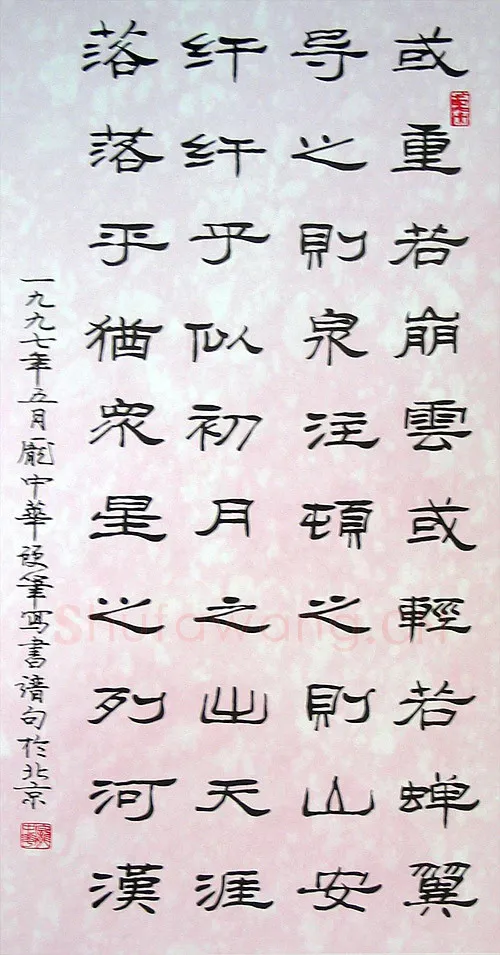 或重若崩雲或輕若蝉翼
导之則泉注頓之則山安
纤纤乎似初月之出天涯
落落乎猶衆星之列河漢
一九九七年五月龐中華硬筆寫書譜句於北京
Shufawang.cn